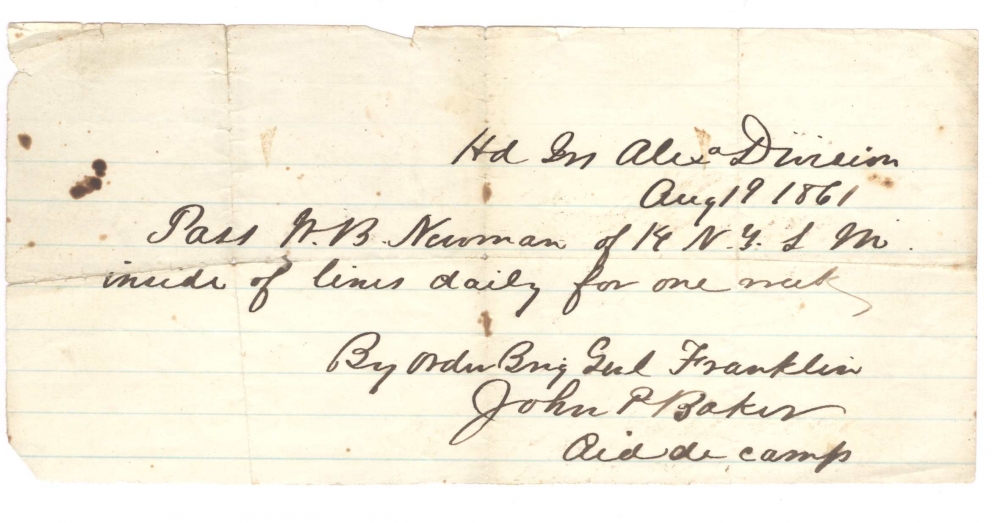 Hd Qrs Alexa Division
Aug 19 1861
Pass W. B. Newman of 14 N.Y. S M.
inside of lines daily for one week
By order Brig Genl Franklin
John P Baker
Aid de camp